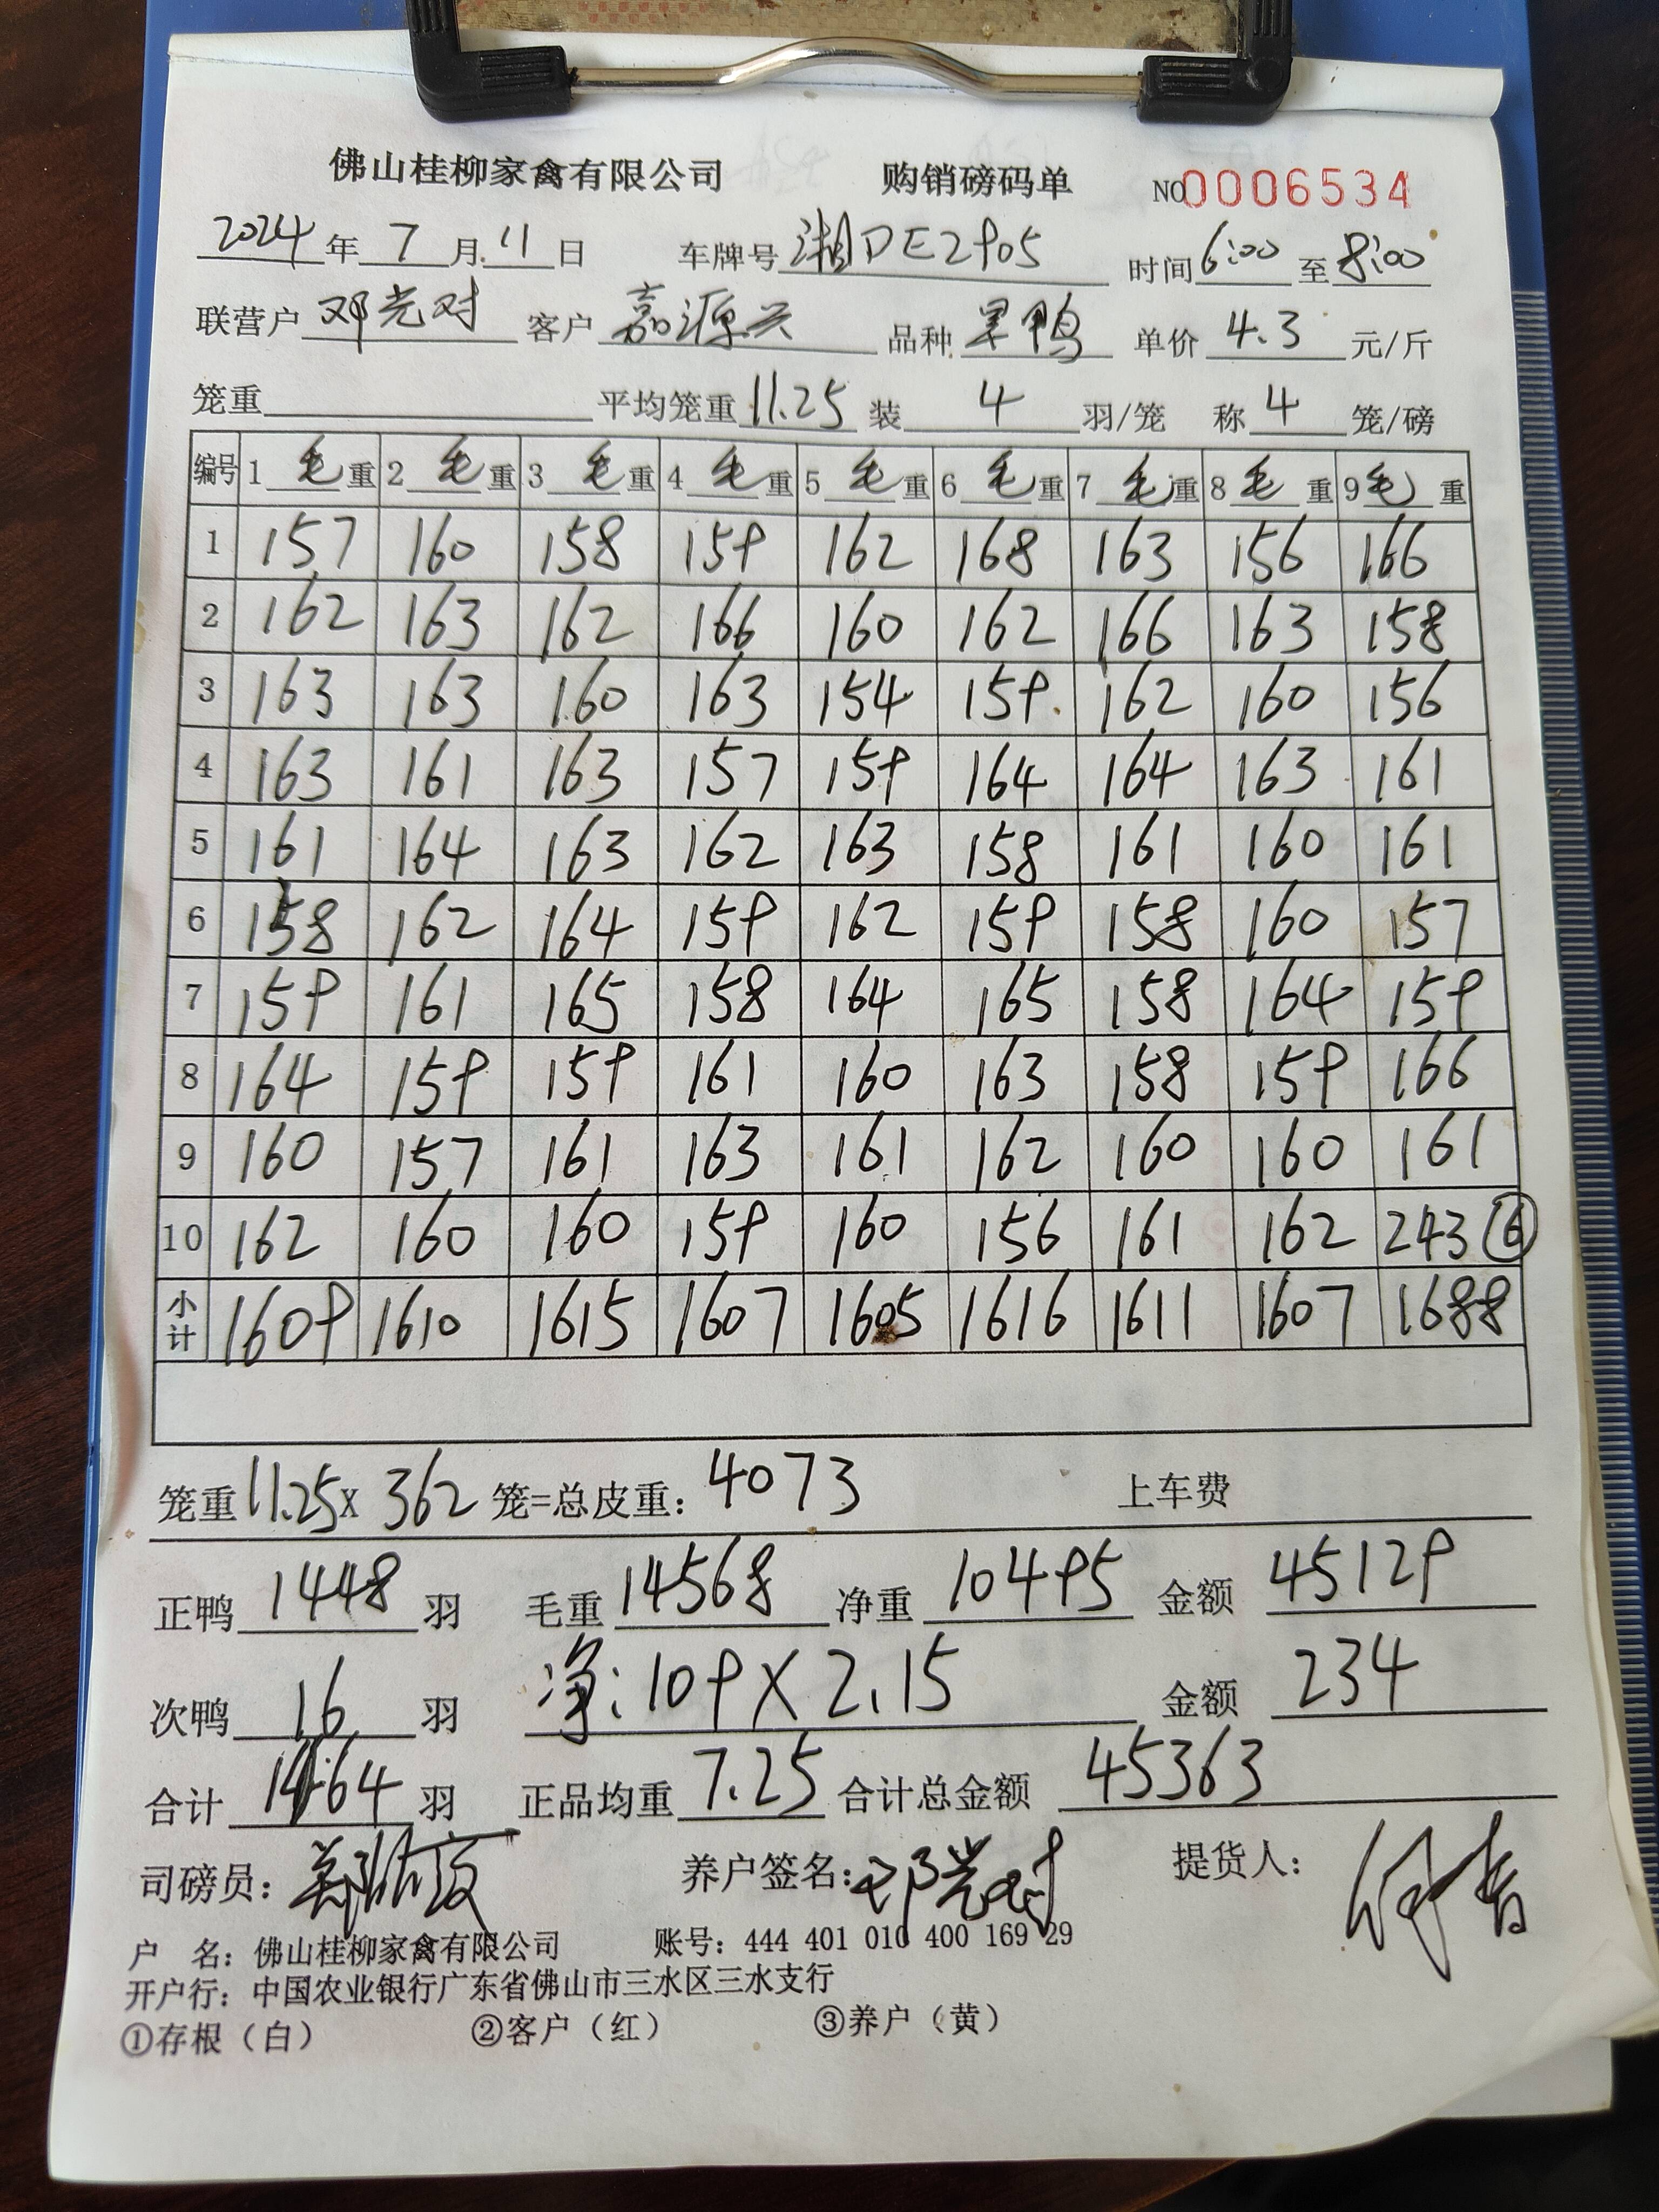 佛山桂柳家禽有限公司 购销磅码单 NO 0006534
2024 年 7 月 11 日 车牌号 湘DE2905 时间 6:00 至 8:00
联营户 邓光对 客户 嘉源兴 品种 鸭 单价 4.3 元/斤
笼重 平均笼重 11.25 装 4 羽/笼 称 4 笼/磅
编号 1 毛 重 2 毛 重 3 毛 重 4 毛 重 5 毛 重 6 毛 重 7 毛 重 8 毛 重 9 毛 重
1 157 160 158 159 162 168 163 156 166
2 162 163 162 166 160 162 166 163 158
3 163 163 160 163 154 159 162 160 156
4 163 161 163 157 159 164 164 163 161
5 161 164 163 162 163 158 161 160 161
6 158 162 164 159 162 159 158 160 157
7 159 161 165 158 164 165 158 164 159
8 164 159 159 161 160 163 158 159 166
9 160 157 161 163 161 162 160 160 161
10 162 160 160 159 160 156 161 162 243 ⑥
小计 1609 1610 1615 1607 1605 1616 1611 1607 1688
笼重 11.25 X 362 笼=总皮重: 4073 上车费
正鸭 1448 羽 毛重 14568 净重 10495 金额 45129
次鸭 16 羽 净: 109 X 2.15 金额 234
合计 1464 羽 正品均重 7.25 合计总金额 45363
司磅员: 养户签名: 邓光对 提货人:
户 名: 佛山桂柳家禽有限公司 账号: 444 401 010 400 169 29
开户行: 中国农业银行广东省佛山市三水区三水支行
①存根（白） ②客户（红） ③养户（黄）